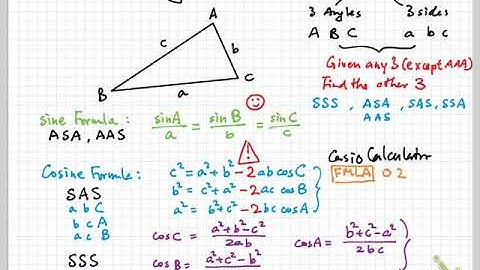 3 Angles 3 sides
A B C a b c
A
c b
B a C
Given any 3 (except AAA)
Find the other 3
SSS , ASA , SAS, SSA
AAS
sine Formula :
ASA , AAS
sinA/a = sinB/b = sinC/c
!
Cosine Formula :
c² = a² + b² - 2ab cosC
b² = c² + a² - 2ac cosB
a² = b² + c² - 2bc cosA
Casio Calculator
FMLA 02
SAS
a b C
b c A
a c B
cosC = a²+b²-c²/2ab
cosA = b²+c²-a²/2bc
SSS
cosB = a²+c²-b²